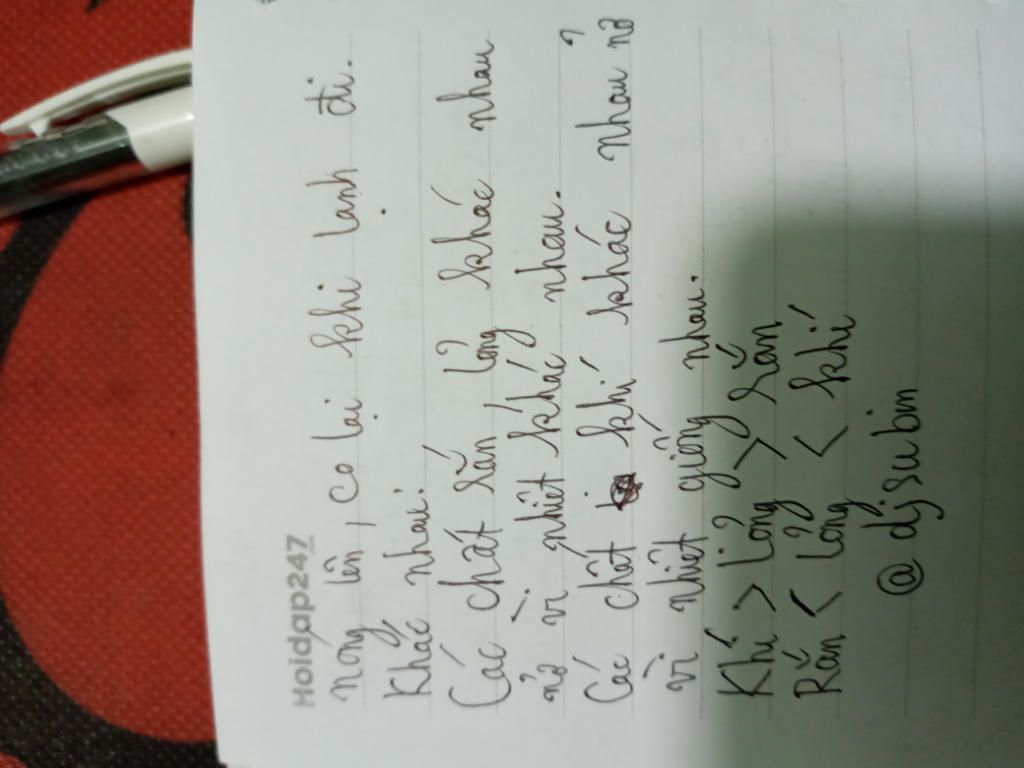 Hoidap247
nóng lên, co lại khi lạnh đi.
Khác nhau:
Các chất rắn, lỏng khác nhau
nở vì nhiệt khác nhau.
Các chất khí khác nhau nở
vì nhiệt giống nhau.
Khí > lỏng > rắn
Rắn < lỏng < khí
@ djsubin